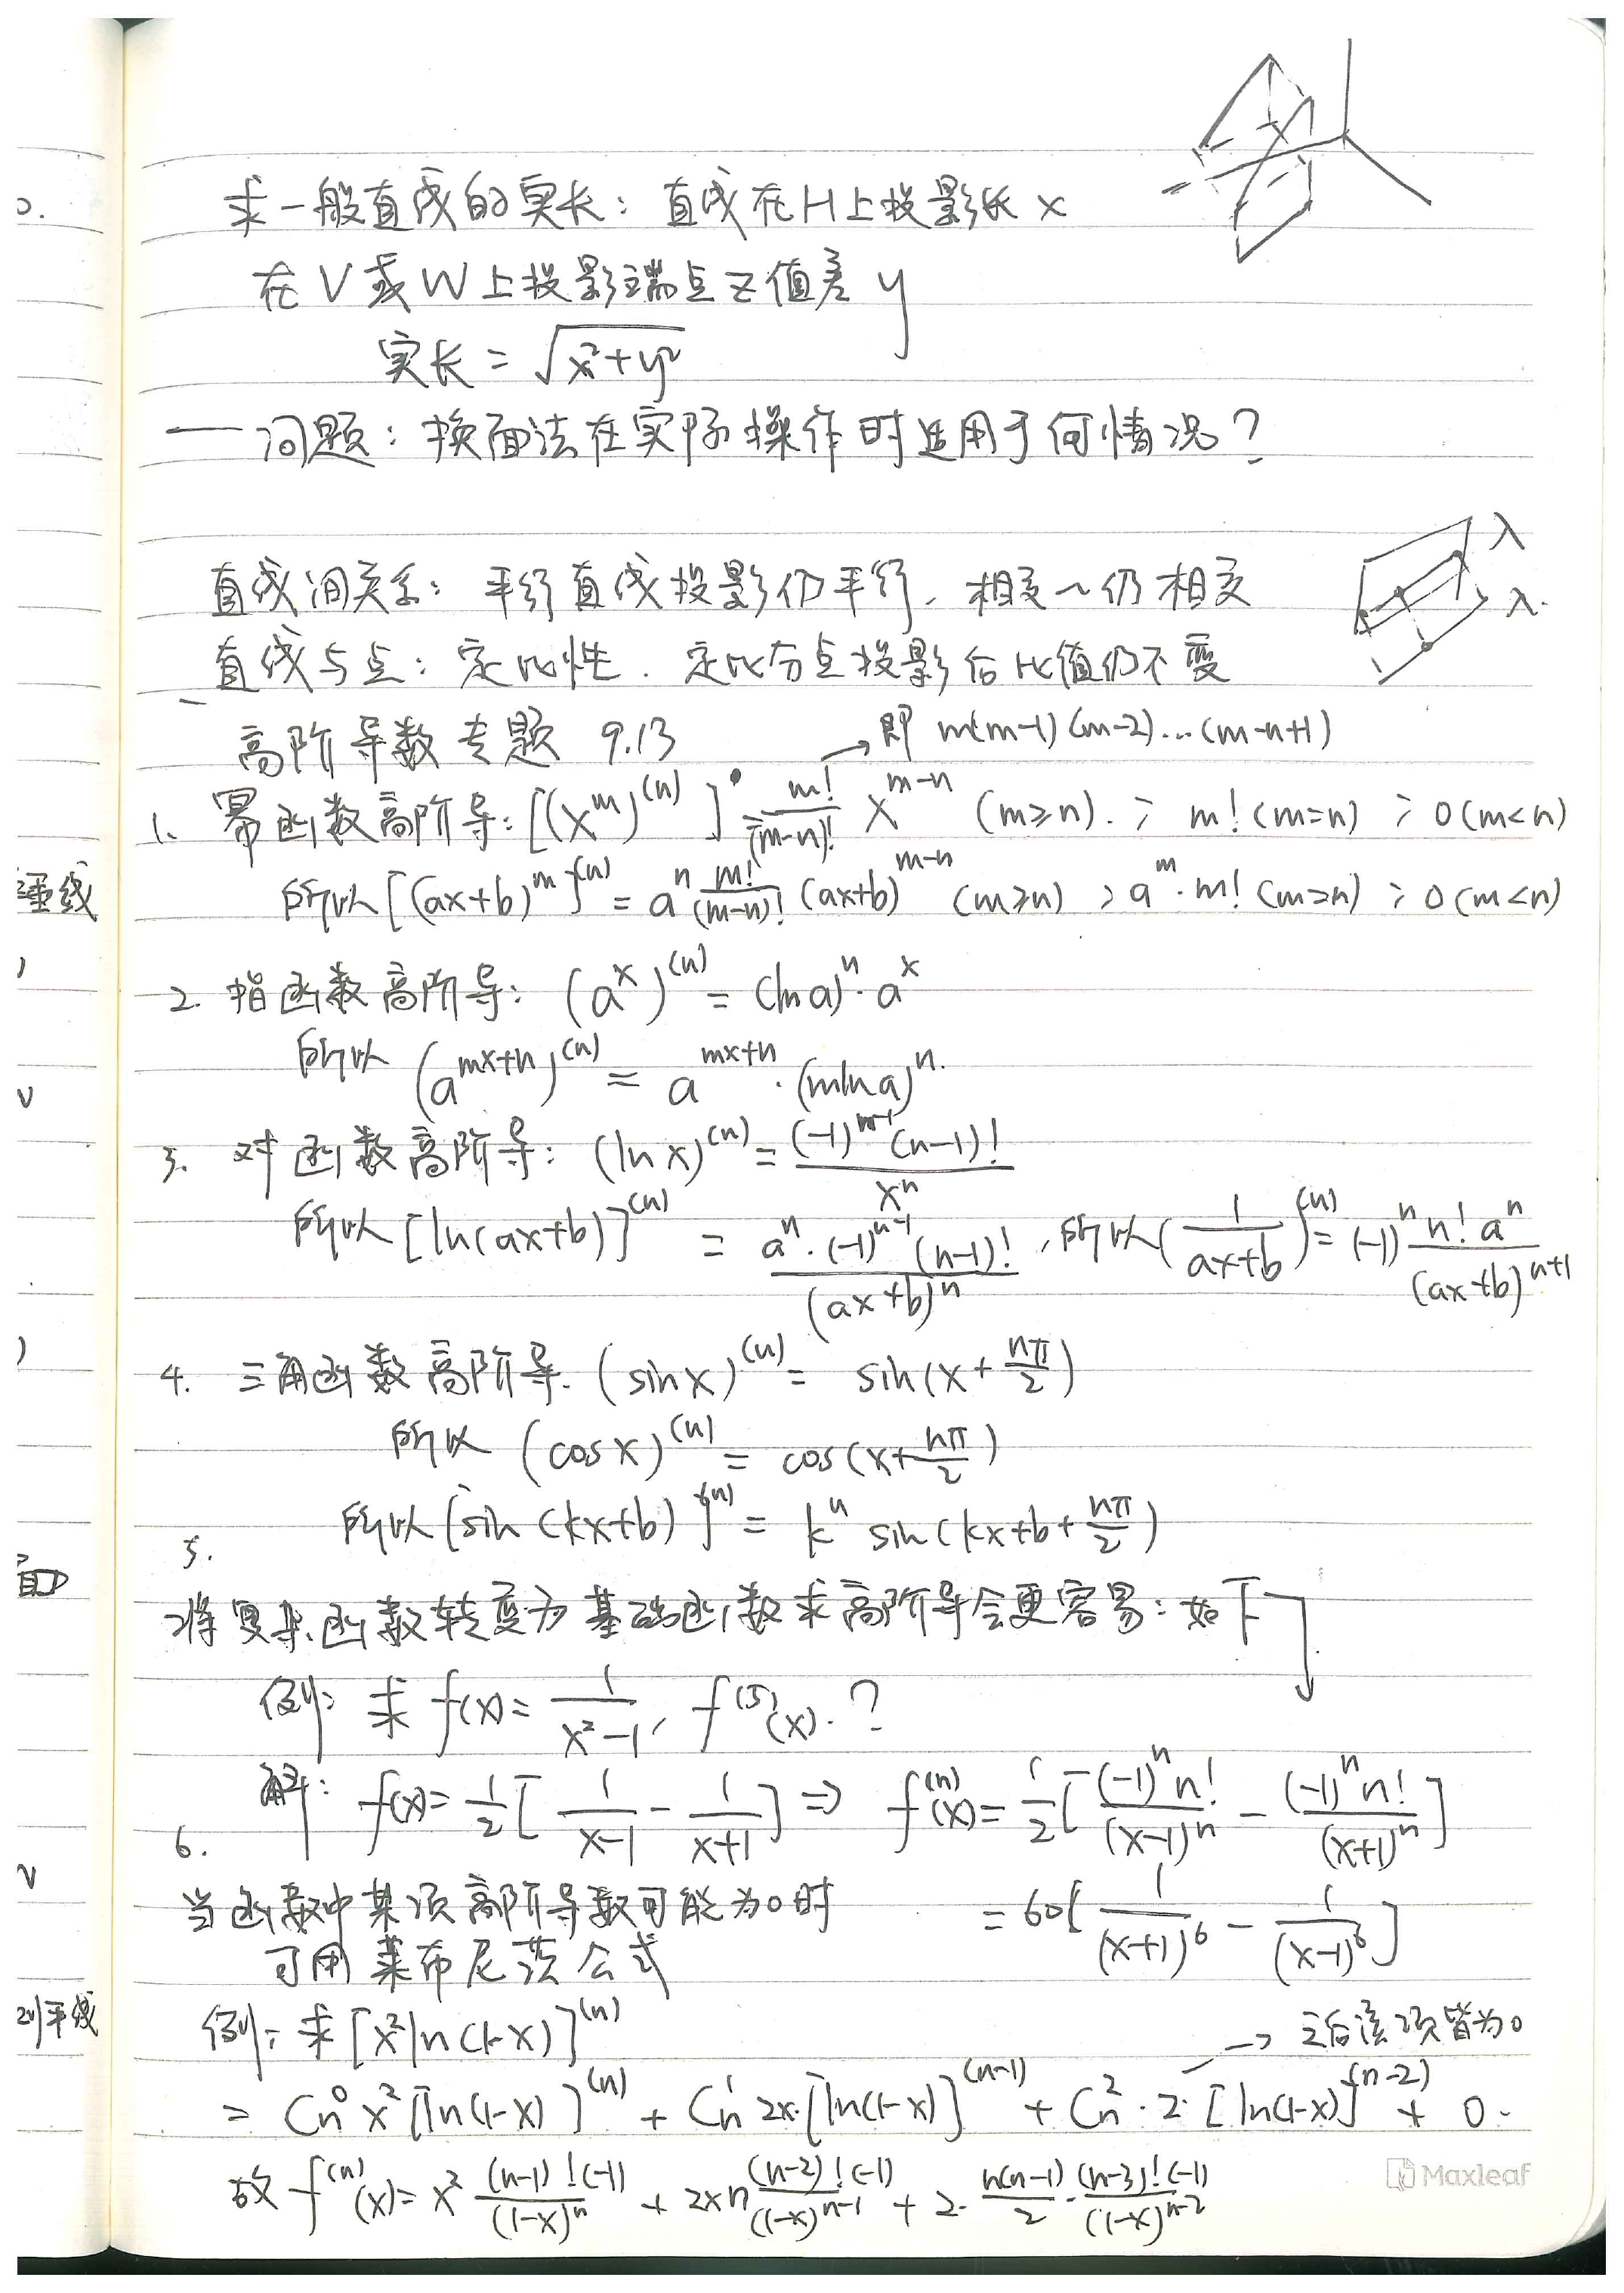 求一般直线的实长：直线在H上投影长 x
在V或W上投影端点Z值差 y
实长 = √(x²+y²)
— 问题：换面法在实际操作时适用于何情况？
λ
直线间关系：平行直线投影仍平行，相交～仍相交
λ.
直线与点：定比性．定比分点投影后比值仍不变
高阶导数专题 9.13
→即 m(m-1)(m-2)...(m-n+1)
1. 幂函数高阶导：[(x^m)^(n)] = m!/(m-n)! x^(m-n) (m≥n). ; m! (m=n) ; 0 (m<n)
所以 [(ax+b)^m]^(n) = a^n m!/(m-n)! (ax+b)^(m-n) (m≥n) ; a^m · m! (m=n) ; 0 (m<n)
2. 指函数高阶导：(a^x)^(n) = (ln a)^n · a^x
所以 (a^(mx+n))^(n) = a^(mx+n) · (m ln a)^n.
3. 对函数高阶导：(ln x)^(n) = (-1)^(n-1) (n-1)! / x^n
所以 [ln(ax+b)]^(n) = a^n · (-1)^(n-1) (n-1)! / (ax+b)^n , 所以 (1/(ax+b))^(n) = (-1)^n n! a^n / (ax+b)^(n+1)
4. 三角函数高阶导. (sin x)^(n) = sin(x + nπ/2)
所以 (cos x)^(n) = cos(x + nπ/2)
所以 [sin(kx+b)]^(n) = k^n sin(kx+b + nπ/2)
5.
将复杂函数转变为基础函数求高阶导会更容易：如下
例：求 f(x) = 1/(x²-1), f^(5)(x). ?
解：f(x) = 1/2 [1/(x-1) - 1/(x+1)] ⇒ f^(n)(x) = 1/2 [(-1)^n n!/(x-1)^n - (-1)^n n!/(x+1)^n]
= 60 [1/(x+1)^6 - 1/(x-1)^6]
6.
当函数中某项高阶导数可能为0时
可用莱布尼茨公式
例：求 [x² ln(1-x)]^(n)
→ 之后该项皆为0
= Cn^0 x² [ln(1-x)]^(n) + Cn^1 2x·[ln(1-x)]^(n-1) + Cn^2 · 2· [ln(1-x)]^(n-2) + 0.
故 f^(n)(x) = x² (n-1)!(-1)/(1-x)^n + 2xn (n-2)!(-1)/(1-x)^(n-1) + 2· n(n-1)/2 · (n-3)!(-1)/(1-x)^(n-2)
Maxleaf